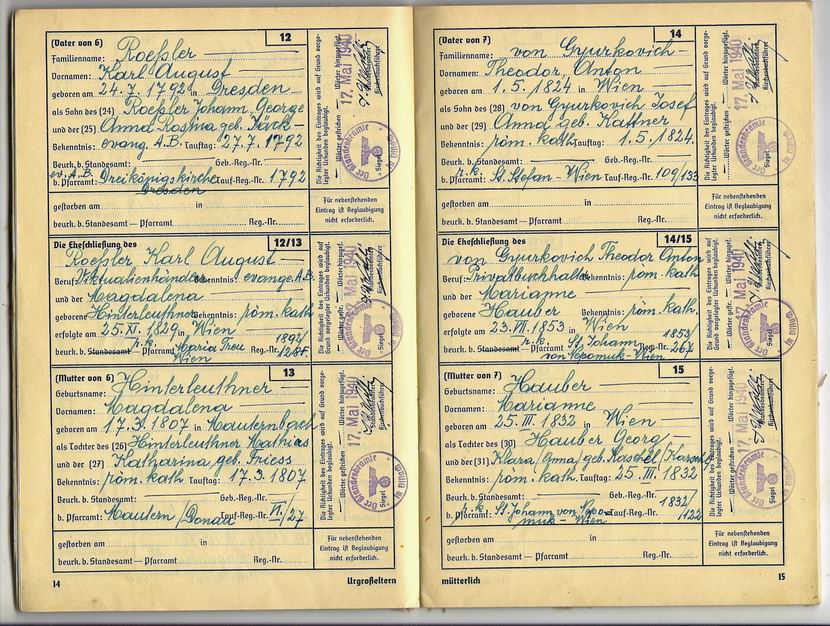 (Vater von 6) 12
Familienname: Roeßler
Vornamen: Karl August
geboren am 24.7.1792 in Dresden
als Sohn des (24) Roeßler Johann George
und der (25) Anna Rosina geb. Jäck
Bekenntnis: evang. A.B. Tauftag: 27.7.1792
Beurk. b. Standesamt: Geb.-Reg.-Nr.
ev. A.B.
b. Pfarramt: Dreikönigskirche Tauf-Reg.-Nr. 1792
Dresden
gestorben am in
beurk. b. Standesamt – Pfarramt Reg.-Nr.
Die Richtigkeit des Eintrages wird auf Grund vorgelegter Urkunden beglaubigt.
Wörter gestrichen Wörter hinzugefügt.
17. Mai 1940
Der Standesbeamte
Siegel
Für nebenstehenden
Eintrag ist Beglaubigung
nicht erforderlich.
Die Eheschließung des 12/13
Roeßler Karl August
Beruf: Viktualienhändler Bekenntnis: evang. A.B.
und der Magdalena
geborene Hinterleuthner Bekenntnis: röm. kath.
erfolgte am 25.XI.1829 in Wien
r.k.
beurk. b. Standesamt – Pfarramt Maria Treu Reg.-Nr.
Wien
Die Richtigkeit des Eintrages wird auf Grund vorgelegter Urkunden beglaubigt.
Wörter gestrichen Wörter hinzugefügt.
17. Mai 1940
Der Standesbeamte
Siegel
(Mutter von 6) 13
Geburtsname: Hinterleuthner
Vornamen: Magdalena
geboren am 17.3.1807 in Mauternbach
als Tochter des (26) Hinterleuthner Mathias
und der (27) Katharina geb. Friess
Bekenntnis: röm. kath. Tauftag: 17.3.1807
Beurk. b. Standesamt: Geb.-Reg.-Nr.
b. Pfarramt: Mautern/Donau Tauf-Reg.-Nr. VI/27
gestorben am in
beurk. b. Standesamt – Pfarramt Reg.-Nr.
Die Richtigkeit des Eintrages wird auf Grund vorgelegter Urkunden beglaubigt.
Wörter gestrichen Wörter hinzugefügt.
17. Mai 1940
Der Standesbeamte
Siegel
Für nebenstehenden
Eintrag ist Beglaubigung
nicht erforderlich.
14 Urgroßeltern
(Vater von 7) 14
Familienname: von Gyurkovich
Vornamen: Theodor, Anton
geboren am 1.5.1824 in Wien
als Sohn des (28) von Gyurkovich Josef
und der (29) Anna geb. Kattner
Bekenntnis: röm. kath. Tauftag: 1.5.1824.
Beurk. b. Standesamt: Geb.-Reg.-Nr.
r.k.
b. Pfarramt: St. Stefan - Wien Tauf-Reg.-Nr. 109/133
gestorben am in
beurk. b. Standesamt – Pfarramt Reg.-Nr.
Die Richtigkeit des Eintrages wird auf Grund vorgelegter Urkunden beglaubigt.
Wörter gestrichen Wörter hinzugefügt.
17. Mai 1940
Der Standesbeamte
Siegel
Für nebenstehenden
Eintrag ist Beglaubigung
nicht erforderlich.
Die Eheschließung des 14/15
von Gyurkovich Theodor Anton
Beruf: Privatbuchhalter Bekenntnis: röm. kath.
und der Marianne
geborene Hauber Bekenntnis: röm. kath.
erfolgte am 23.VII.1853 in Wien
r.k. 1853/
beurk. b. Standesamt – Pfarramt St. Johann Reg.-Nr. 267
von Nepomuk - Wien
Die Richtigkeit des Eintrages wird auf Grund vorgelegter Urkunden beglaubigt.
Wörter gestrichen Wörter hinzugefügt.
17. Mai 1940
Der Standesbeamte
Siegel
(Mutter von 7) 15
Geburtsname: Hauber
Vornamen: Marianne
geboren am 25.III.1832 in Wien
als Tochter des (30) Hauber Georg
und der (31) Klara/Anna/geb.
Bekenntnis: röm. kath. Tauftag: 25.III.1832
Beurk. b. Standesamt: Geb.-Reg.-Nr.
r.k. 1832/
b. Pfarramt: St. Johann von Nepo- Tauf-Reg.-Nr. 122
muk - Wien
gestorben am in
beurk. b. Standesamt – Pfarramt Reg.-Nr.
Die Richtigkeit des Eintrages wird auf Grund vorgelegter Urkunden beglaubigt.
Wörter gestrichen Wörter hinzugefügt.
17. Mai 1940
Der Standesbeamte
Siegel
Für nebenstehenden
Eintrag ist Beglaubigung
nicht erforderlich.
mütterlich 15